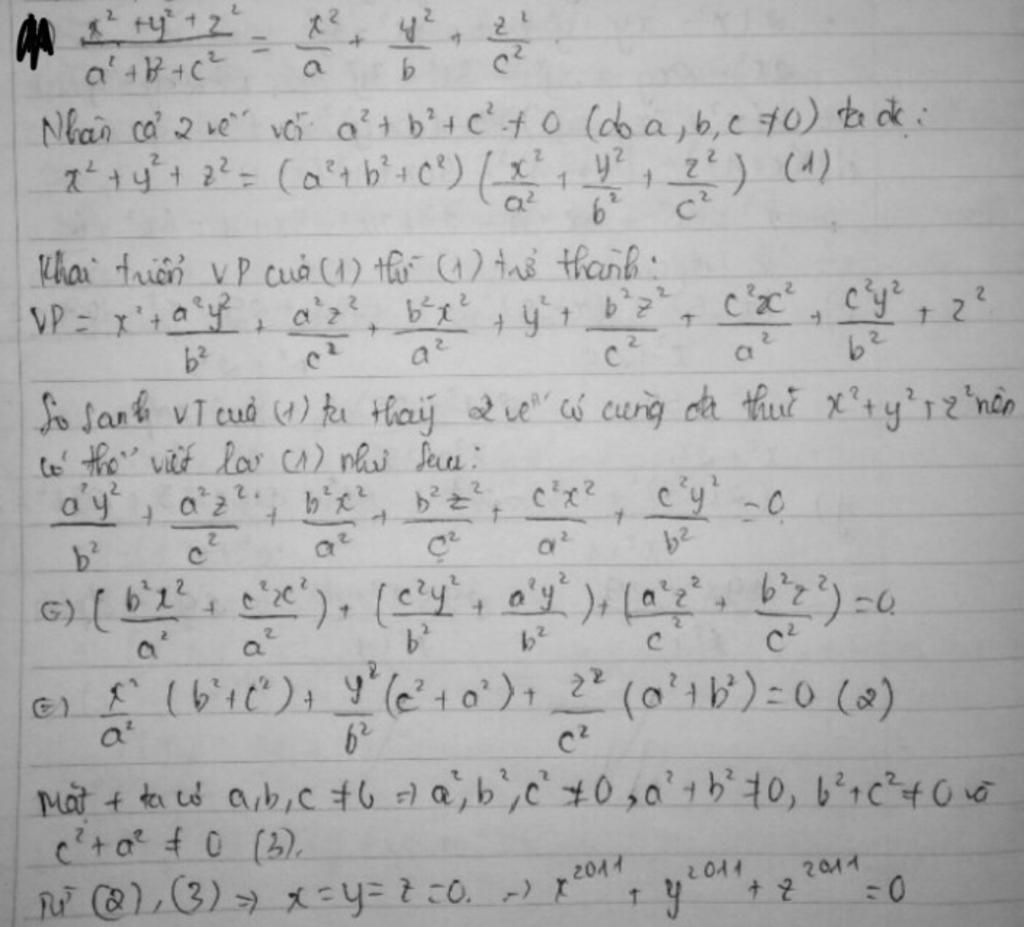 x² + y² + z² / a² + b² + c² = x²/a + y²/b + z²/c²
Nhân cả 2 vế với a² + b² + c² ≠ 0 (do a, b, c ≠ 0) ta đc:
x² + y² + z² = (a² + b² + c²) (x²/a² + y²/b² + z²/c²) (1)
Khai triển VP của (1) thì (1) trở thành:
VP = x² + a²y²/b² + a²z²/c² + b²x²/a² + y² + b²z²/c² + c²x²/a² + c²y²/b² + z²
So sánh VT của (1) ta thấy 2 vế có cùng đa thức x² + y² + z² nên
có thể viết lại (1) như sau:
a²y²/b² + a²z²/c² + b²x²/a² + b²z²/c² + c²x²/a² + c²y²/b² = 0
(=) (b²x²/a² + c²x²/a²) + (c²y²/b² + a²y²/b²) + (a²z²/c² + b²z²/c²) = 0
(=) x²/a² (b² + c²) + y²/b² (c² + a²) + z²/c² (a² + b²) = 0 (2)
Mặt + ta có a, b, c ≠ 0 => a², b², c² ≠ 0, a² + b² ≠ 0, b² + c² ≠ 0 và
c² + a² ≠ 0 (3).
Từ (2), (3) => x = y = z = 0. -> x²⁰¹¹ + y²⁰¹¹ + z²⁰¹¹ = 0